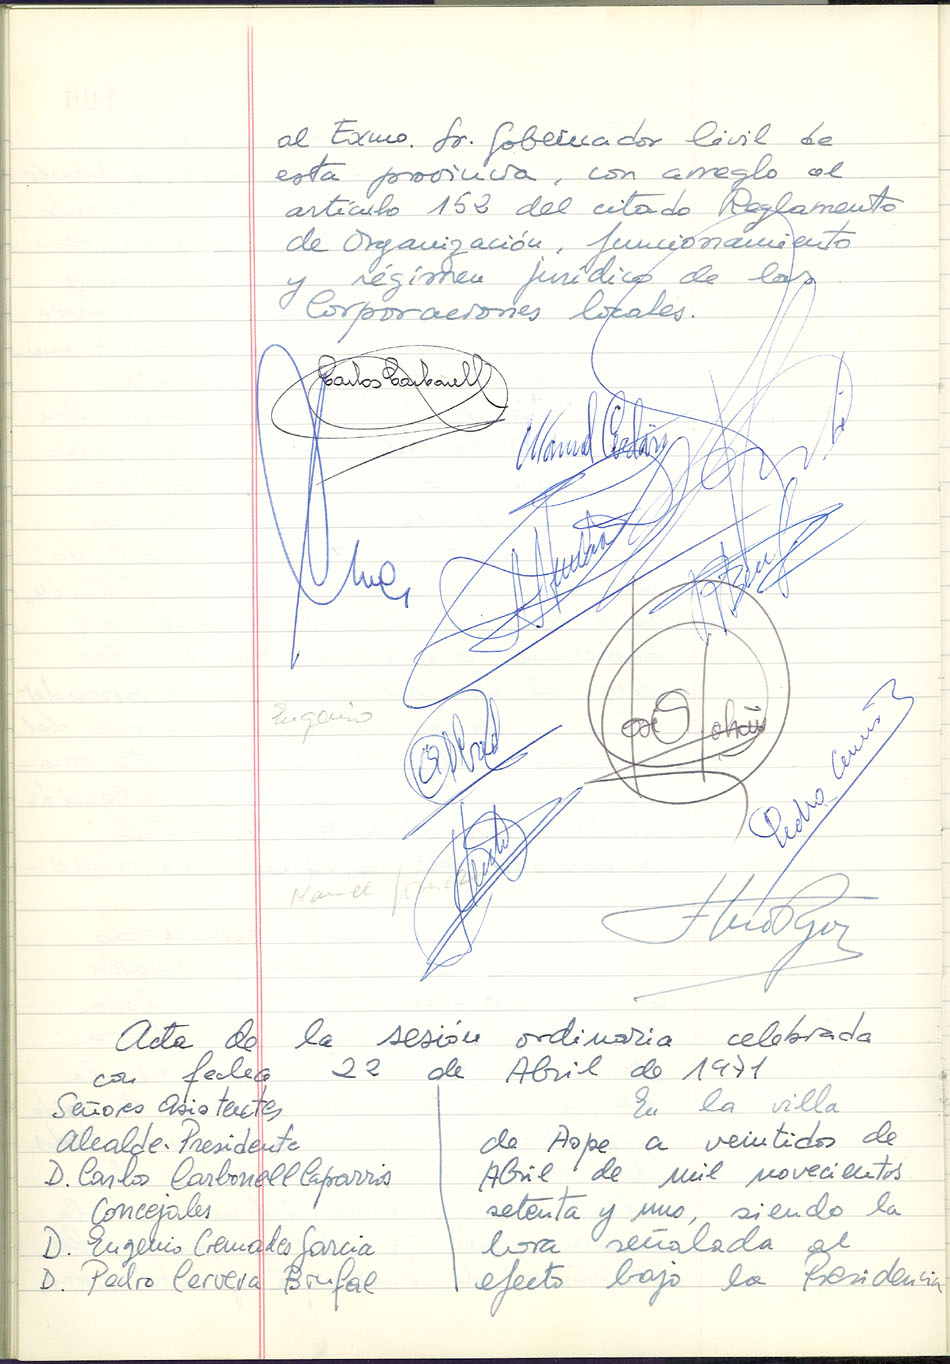 al Exmo. Sr. Gobernador Civil de
esta provincia, con arreglo al
artículo 152 del citado Reglamento
de Organización, funcionamiento
y régimen jurídico de las
Corporaciones locales.
Carlos Carbonell
Manuel
Eugenio
José
Pedro
Manuel
Acta de la sesión ordinaria celebrada
con fecha 22 de Abril de 1971
Señores Asistentes
Alcalde-Presidente
D. Carlos Carbonell Caparrós
Concejales
D. Eugenio Cremades Garcia
D. Pedro Cervera Brufal
En la villa
de Aspe a veintidos de
Abril de mil novecientos
setenta y uno, siendo la
hora señalada al
efecto bajo la Presidencia